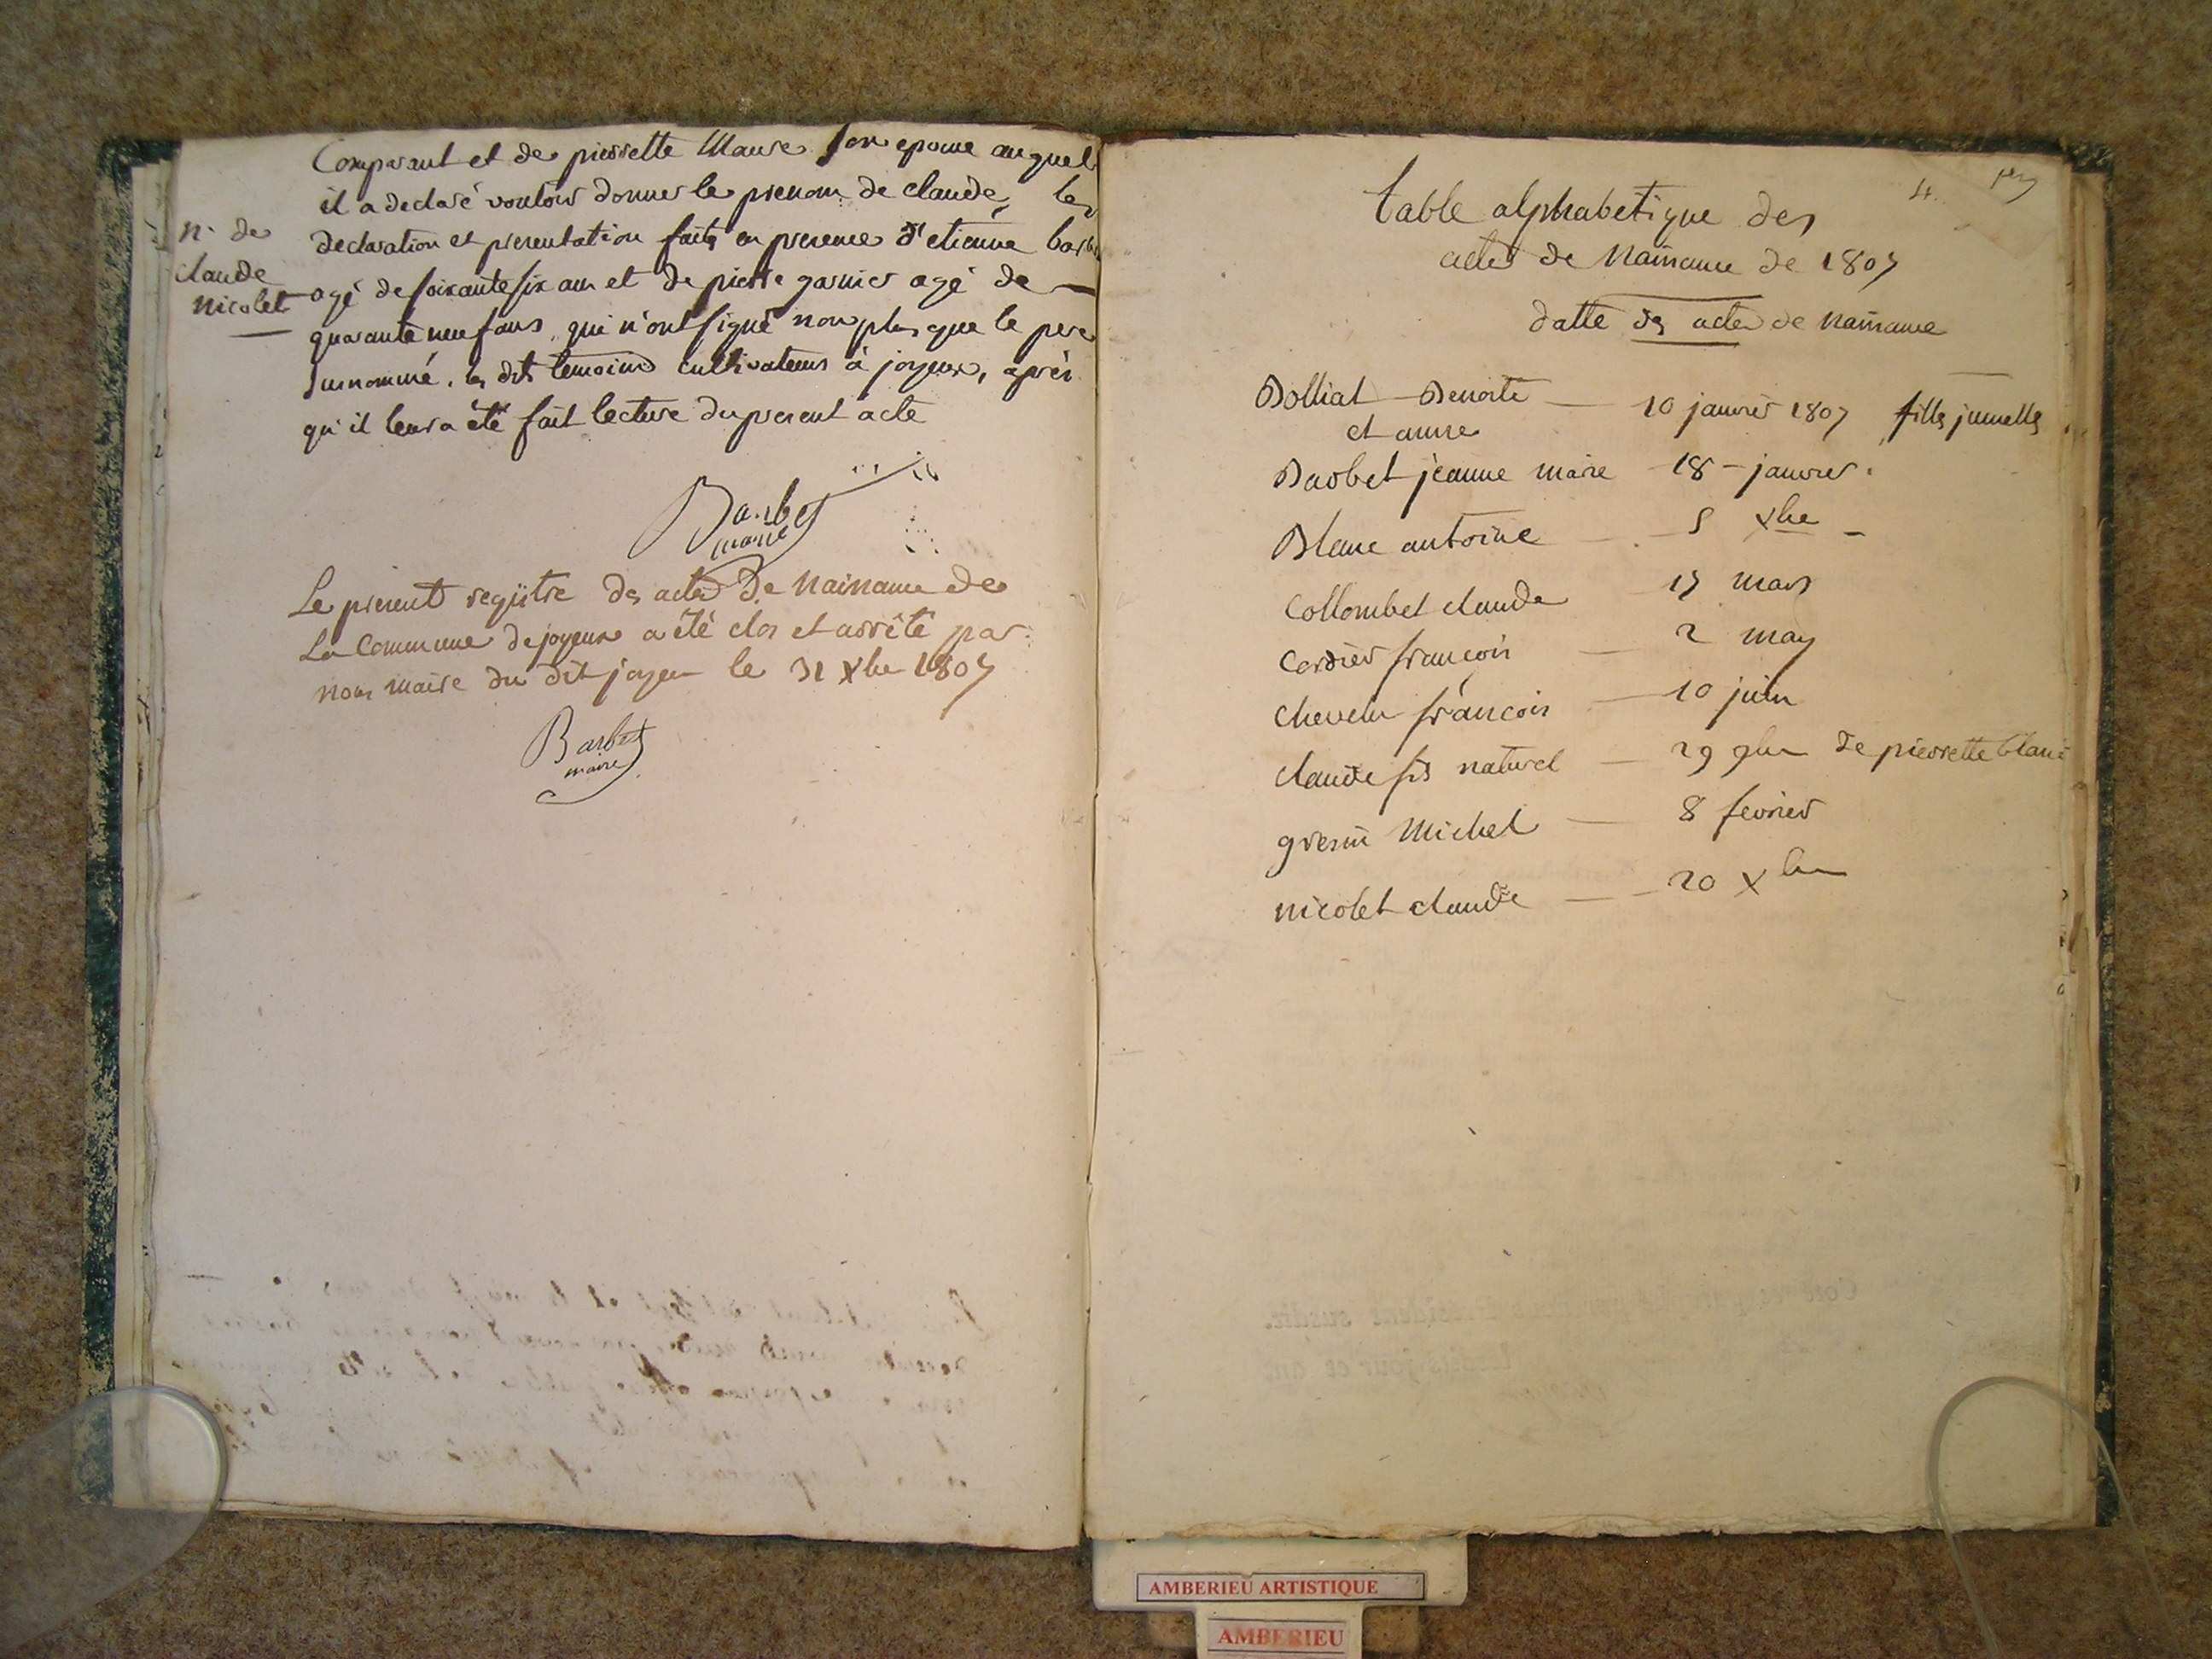 Comparant et de pierrette Maure son epouse auquel
il a declaré vouloir donner le prenom de claude, les
declaration et presentation faits en presence d'etienne barbet
agé de soixante six ans et de pierre garnier agé de
quarante neuf ans, qui n'ont signé non plus que le pere
susnommé, les dits temoins cultivateurs à joyeux, aprés
qu'il leur a été fait lecture du present acte
n. de
claude
nicolet
Barbet
maire
Le present registre des actes de Naissance de
La Commune de joyeux a été clos et arrêté par
nous maire du dit joyeux le 31 Xbre 1807
Barbet
maire
4.
table alphabetique des
actes de Naissance de 1807
datte des actes de naissance
Bolliat Benoite — 10 janvier 1807 filles jumelles
et anne
Barbet jeanne marie 18 - janvier.
Blanc antoine — 5 Xbre -
Collombet claude 17 mars
Cordier françois — 2 may
Chevelu françois — 10 juin
claude fils naturel — 29 9bre de pierrette blanc
gresin Michel — 8 fevrier
nicolet claude — 20 Xbre
AMBERIEU ARTISTIQUE
AMBERIEU